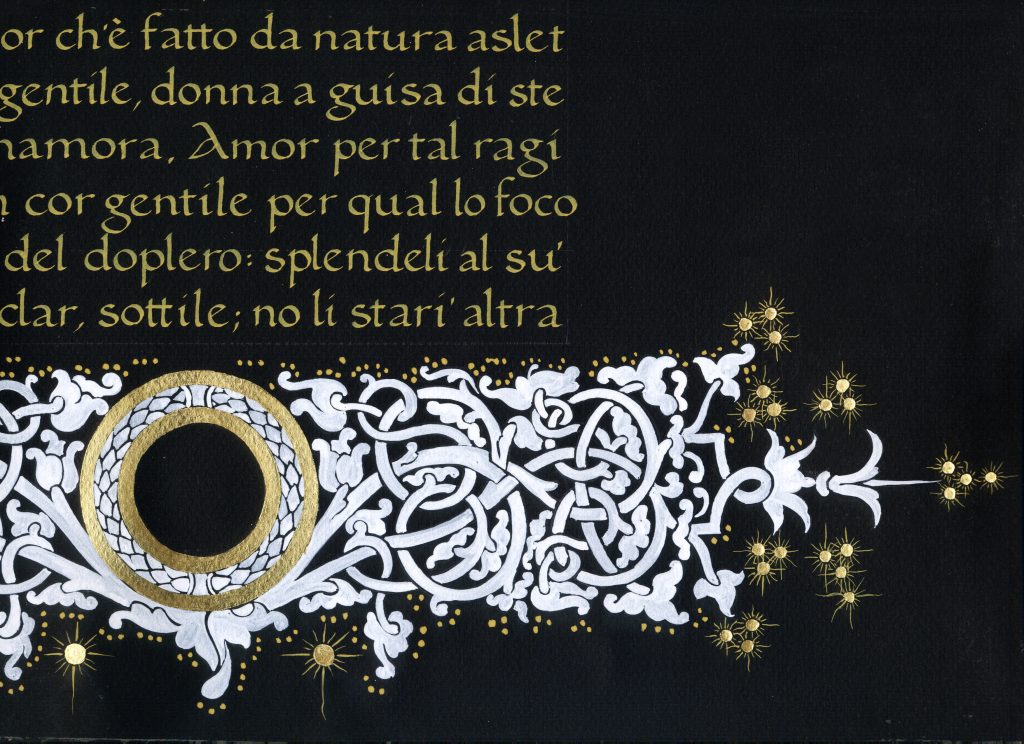 or ch'è fatto da natura aslet
gentile, donna a guisa di ste
namora. Amor per tal ragi
n cor gentile per qual lo foco
del doplero: splendeli al su'
clar, sottile; no li stari' altra